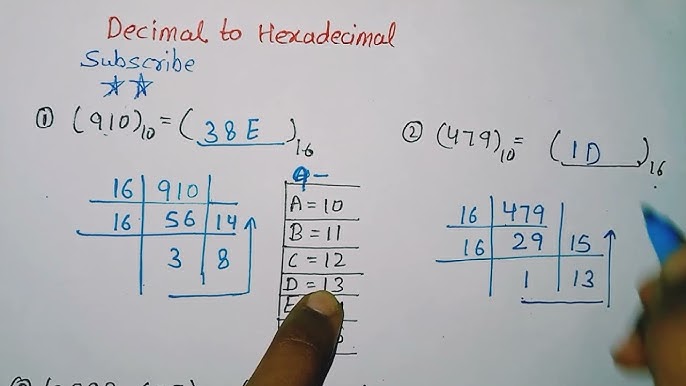 Decimal to Hexadecimal
Subscribe
① (910)10 = (38E)16
16 910
16 56 14
3 8
9-
A = 10
B = 11
C = 12
D = 13
E
② (479)10 = (1D )16
16 479
16 29 15
1 13